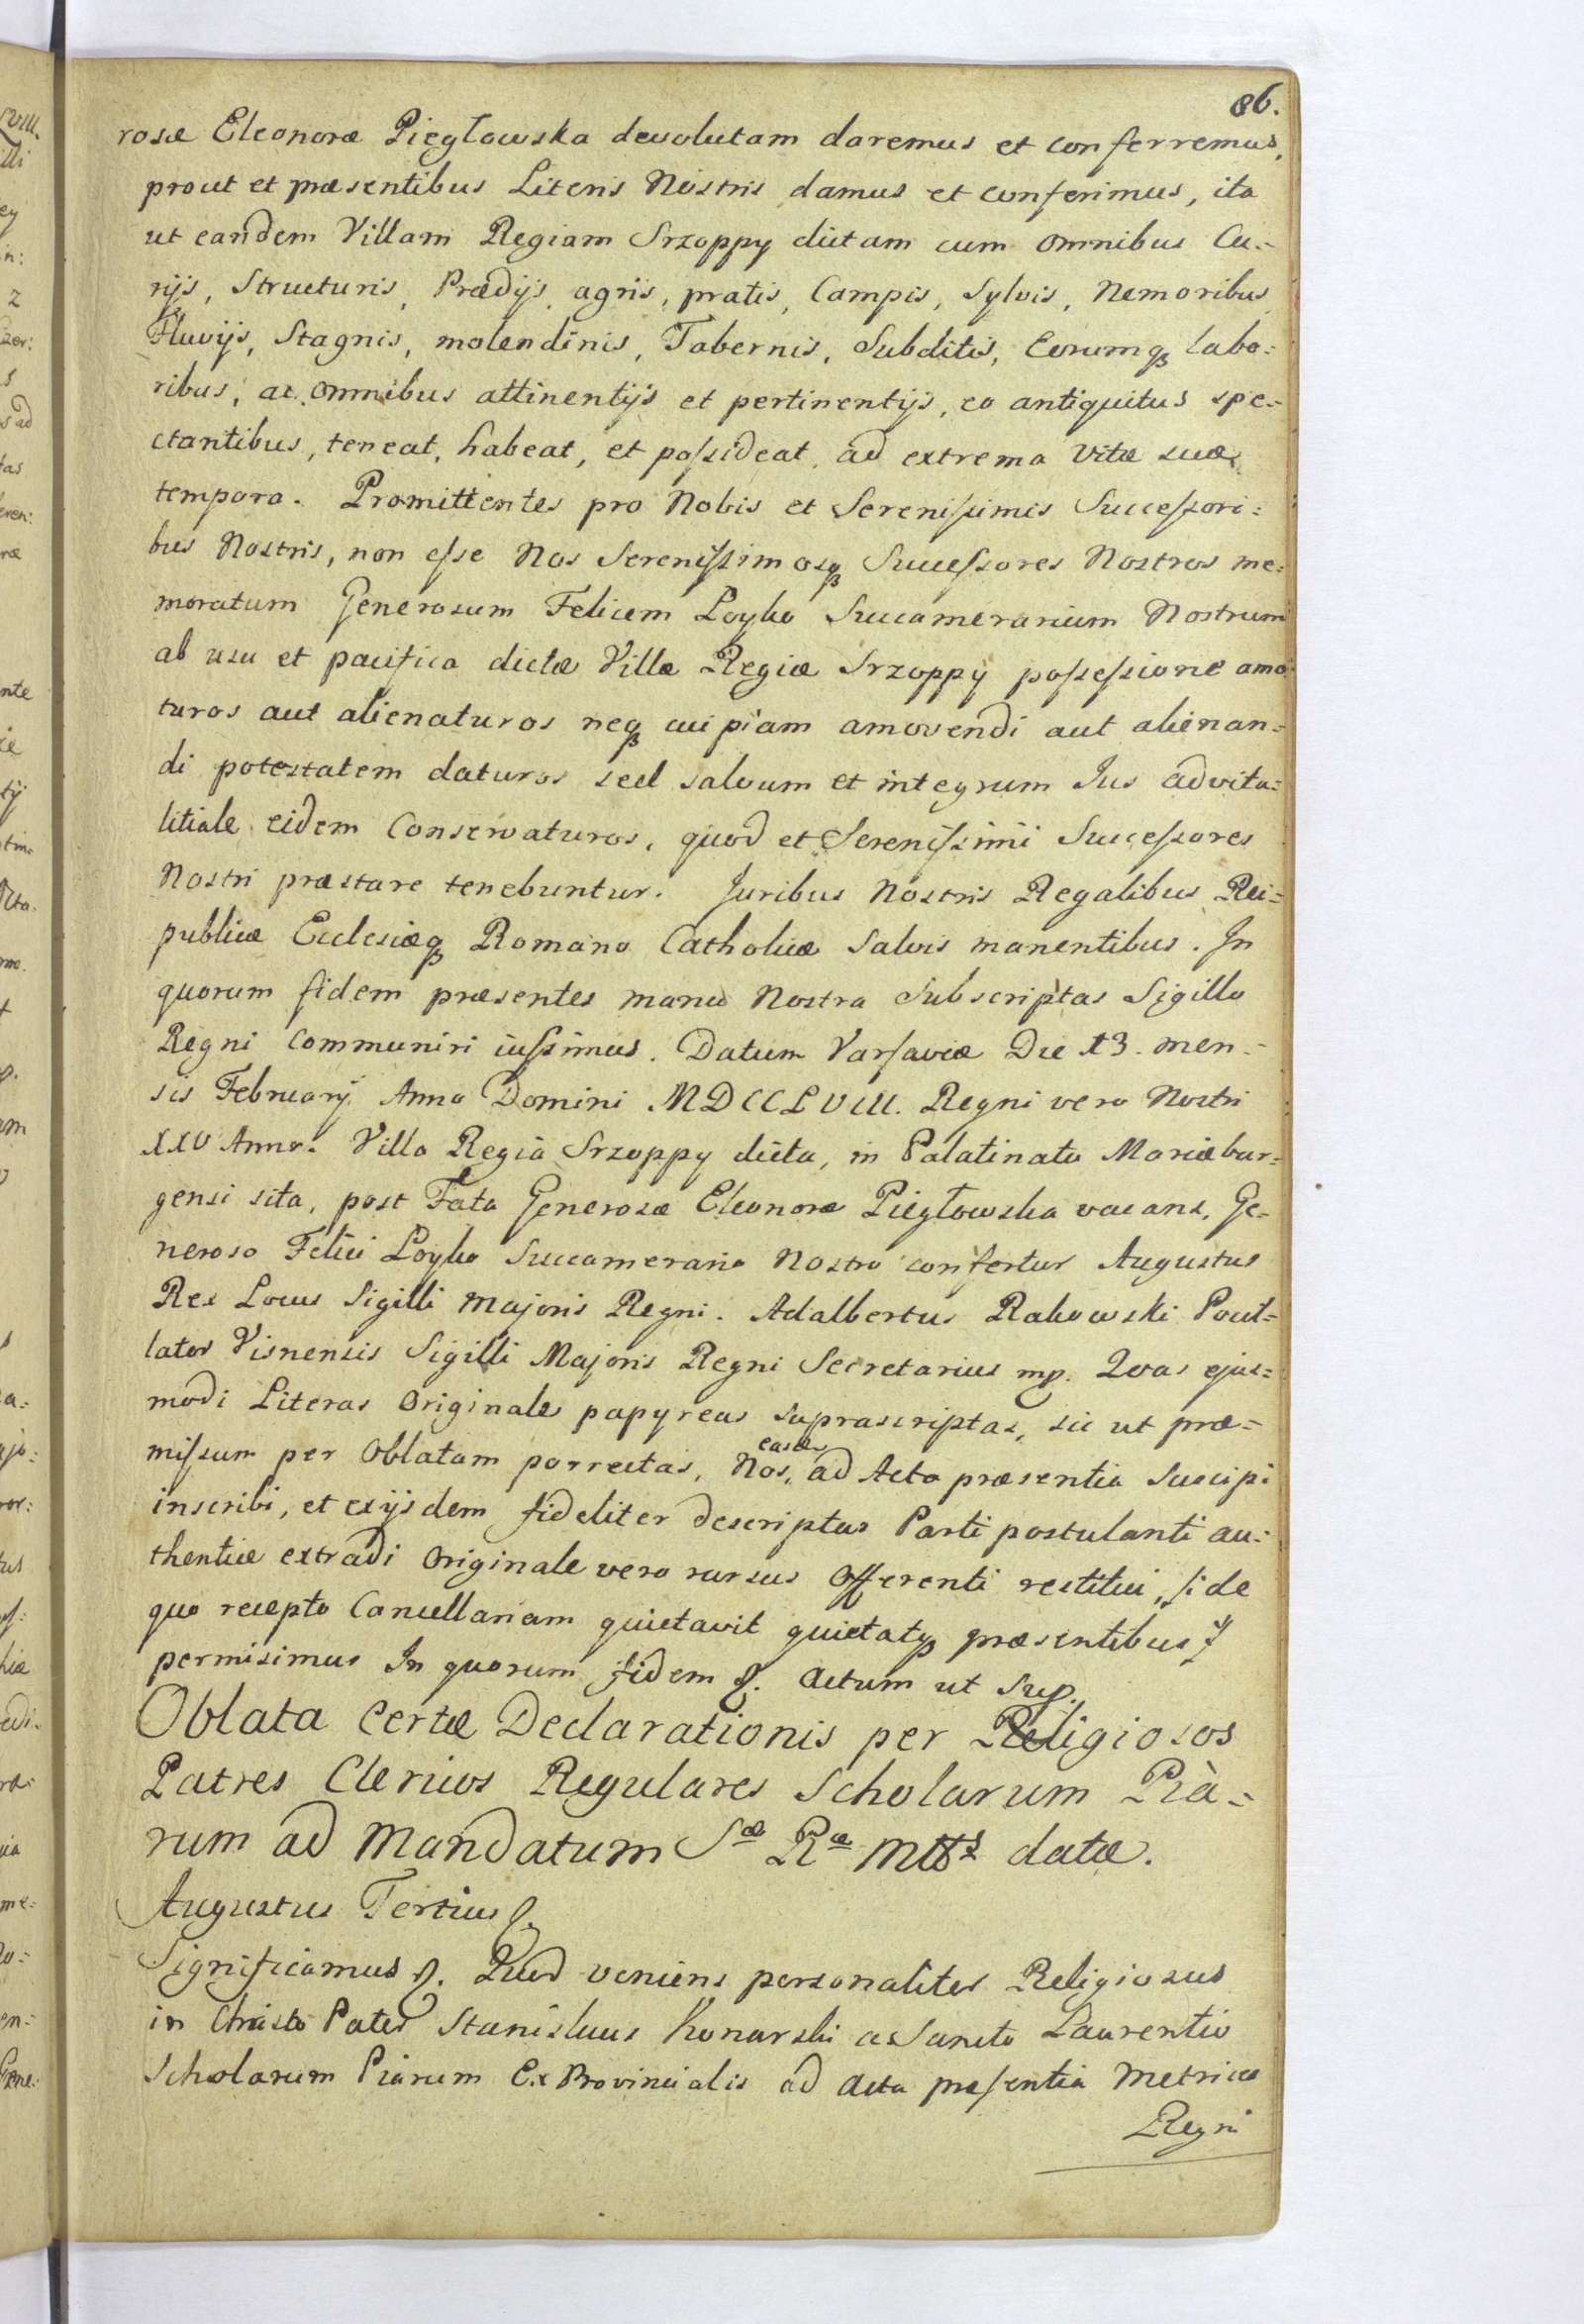 86.
rosæ Eleonoræ Piegłowska devolutam daremus et conferremus,
prout et præsentibus Literis Nostris damus et conferimus, ita
ut eandem Villam Regiam Srzoppy dictam cum omnibus Cu=
rijs, Structuris, Prædijs, agris, pratis, Campis, Sylvis, Nemoribus
Fluvijs, Stagnis, molendinis, Tabernis, Subditis, Eorumq3 labo=
ribus, ac omnibus attinentijs et pertinentijs, eo antiquitus spe=
ctantibus, teneat, habeat, et possideat, ad extrema Vitæ suæ
tempora. Promittentes pro Nobis et Serenissimis Successori=
bus Nostris, non esse Nos Serenissimosq3 Successores Nostros me=
moratum Generosum Felicem Loyko Succamerarium Nostrum
ab usu et pacifica dictæ Villæ Regiæ Srzoppy possessione amo
turos aut alienaturos neq3 cuipiam amovendi aut alienan=
di potestatem daturos sed salvum et integrum Jus advita=
litiale eidem Conservaturos, quod et Serenissimi Successores
Nostri præstare tenebuntur. Juribus Nostris Regalibus Rei=
publicæ Ecclesiæq3 Romano Catholicæ Salvis manentibus. In
quorum fidem præsentes manu Nostra Subscriptas Sigillo
Regni Communiri iussimus. Datum Varsaviæ Die 13. men=
sis Februarij Anno Domini MDCCLVIII. Regni vero Nostri
XXV Anno. Villa Regia Srzoppy dicta, in Palatinatu Mariæbur=
gensi sita, post Fata Generosæ Eleonoræ Piegłowska vacans, Ge=
neroso Felici Loyko Succamerario Nostro confertur Augustus
Rex Locus Sigilli Majoris Regni. Adalbertus Rakowski Pocil=
lator Visnensis Sigilli Majoris Regni Secretarius mp. Quas ejus=
modi Literas Originales papyreas suprascriptas, sic ut præ=
missum per Oblatam porrectas, Nos, easdem ad Acta præsentia Suscipi
inscribi, et exijsdem fideliter descriptas Parti postulanti au=
thentice extradi Originale vero rursus Offerenti restitui, /: de
quo recepto Cancellariam quietavit quietatq3 præsentibus :/
permisimus In quorum fidem &. Actum ut Sup.
Oblata Certæ Declarationis per Religiosos
Patres Clericos Regulares Scholarum Pià=
rum ad Mandatum Sæ Ræ Mttis datæ.
Augustus Tertius &.
Significamus &. Quod veniens personaliter Religiosus
in Christo Pater Stanislaus Konarski a Sancto Laurentio
Scholarum Piarum Ex Provincialis ad Acta præsentia Metrices
Regni